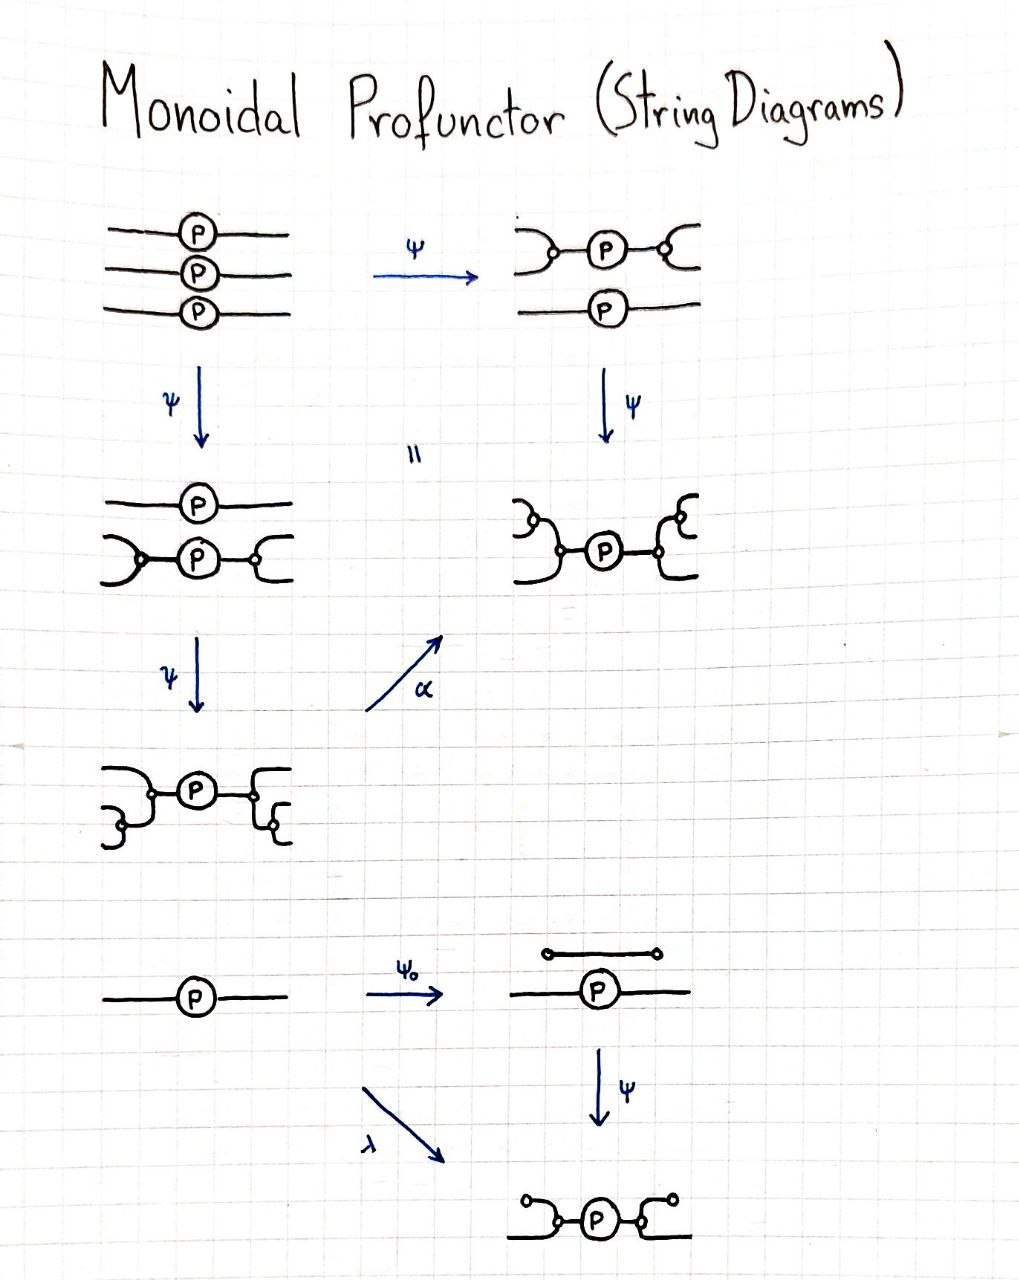 Monoidal Profunctor (String Diagrams)
P
P
P
ψ
P
P
ψ
ψ
=
P
P
P
ψ
α
P
P
ψ₀
P
ψ
λ
P